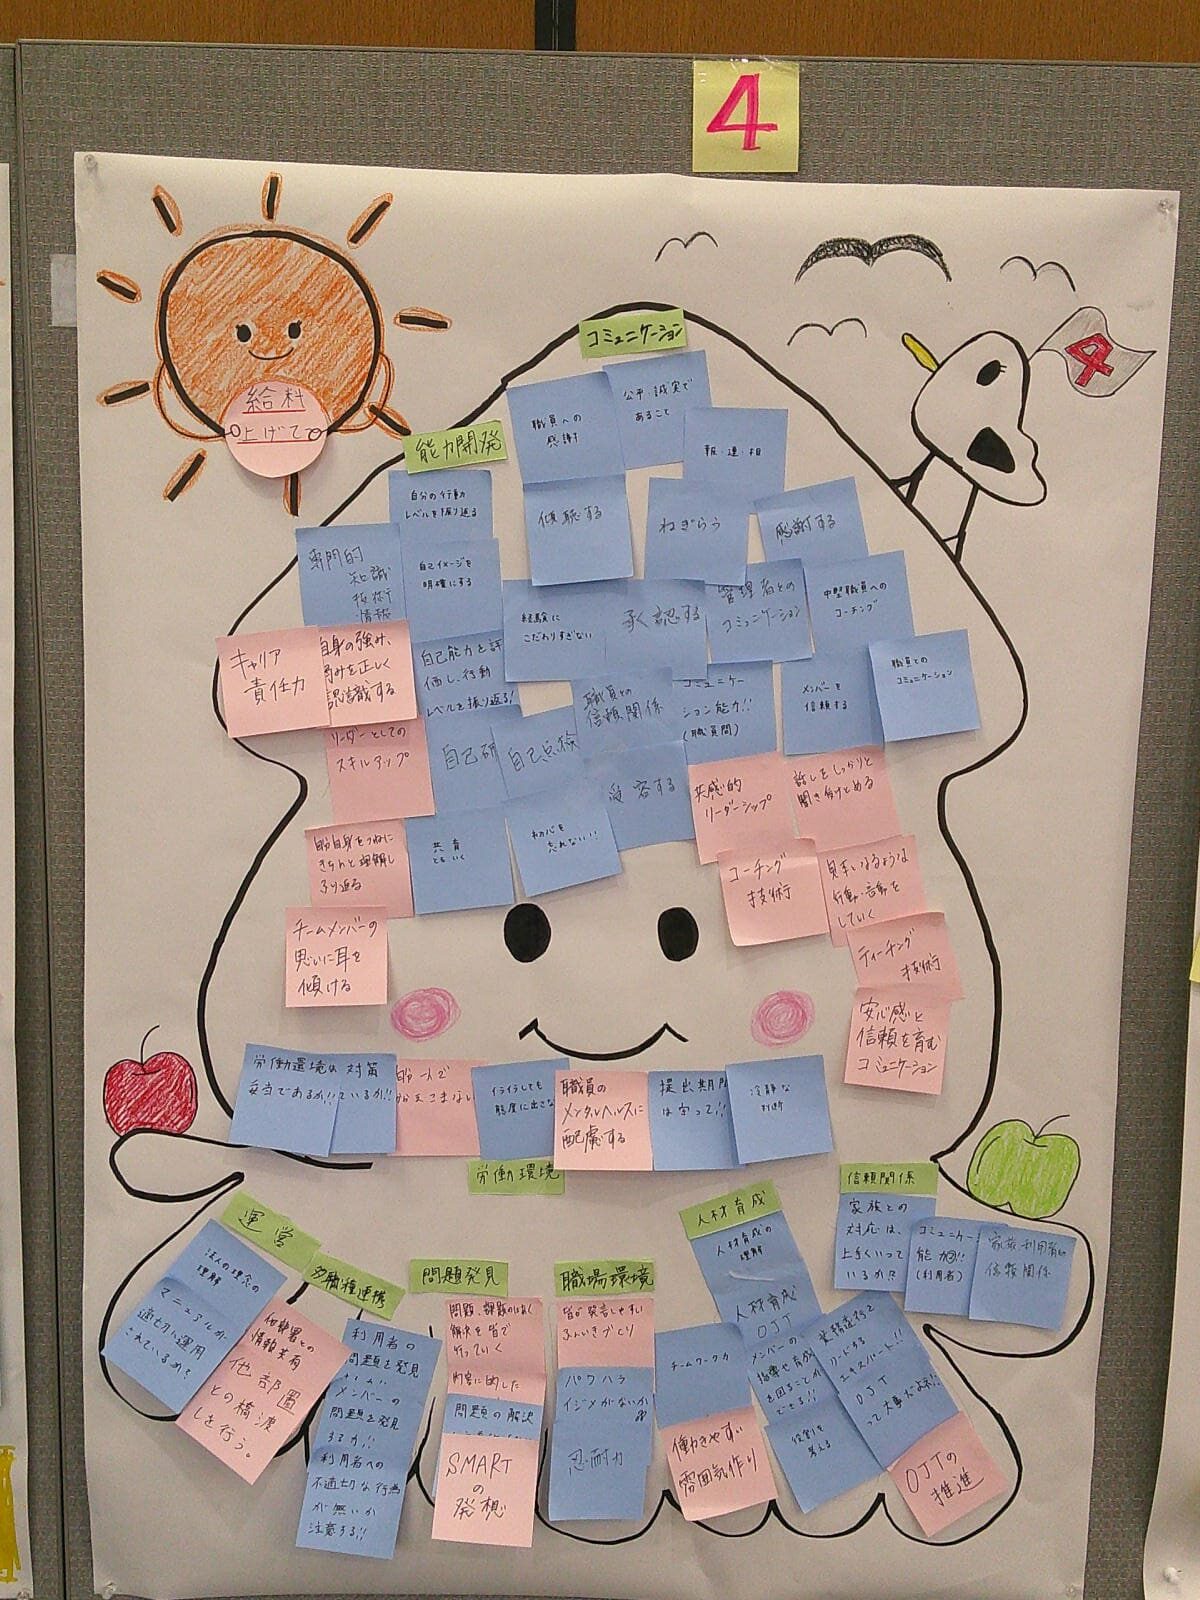 4
給料
上げて
4
コミュニケーション
職員への
感謝
公平・誠実で
あること
報・連・相
能力開発
自分の行動
レベルを振り返る
傾聴する
ねぎらう
感謝する
専門的
知識
技術
情報
自己イメージを
明確にする
経験に
こだわりすぎない
承認する
管理者との
コミュニケーション
中堅職員への
コーチング
キャリア
責任力
自身の強み、
弱みを正しく
認識する
自己能力を評
価し、行動
レベルを振り返る!
職員との
信頼関係
コミュニケー
ション能力!!
(職員間)
メンバーを
信頼する
職員との
コミュニケーション
リーダーとしての
スキルアップ
自己研
自己点検
受容する
共感的
リーダーシップ
話しをしっかりと
聞き受けとめる
自分自身をつねに
きちんと理解し
ふり返る
共育
ともいく
初心を
忘れない!!
コーチング
技術
見本となるような
行動・言動を
していく
チームメンバーの
思いに耳を
傾ける
ティーチング
技術
安心感と
信頼を育む
コミュニケーション
労働環境は
妥当であるか!!
対策
ているか!!
自分一人で
イライラしても
態度に出さな
職員の
メンタルヘルスに
配慮する
提出期限
は守って!!
冷静な
判断
労働環境
運営
法人の理念の
理解
マニュアルが
適切に運用
されているか?
多職種連携
他部署との
情報共有
他部署
との橋渡
しを行う。
利用者の
問題を発見
メンバーの
問題を発見
する力!!
利用者への
不適切な行為
が無いか
注意する!!
問題発見
問題、課題のはなく
解決を皆で
行っていく
内容に即した
問題の解決
SMART
の
発想
職場環境
皆が発言しやすい
ふんいきづくり
パワハラ
イジメがないか
忍耐力
人材育成
人材育成の
理解
人材育成
OJT
チームワーク力
メンバーの
指導や育成
を図ることが
できる!!
役割を
考える
働きやすい
雰囲気作り
業務遂行を
リードする
エキスパート!!
OJT
って大事だよネ!!
OJTの
推進
信頼関係
家族との
対応は、
上手くいって
いるか?
コミュニケー
能力!!
(利用者)
家族・利用者の
信頼関係